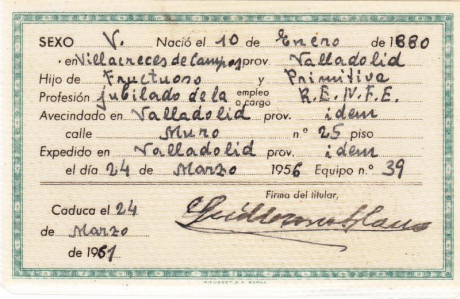 SEXO V. Nació el 10 de Enero de 1880
en Villacreces de Campos prov. Valladolid
Hijo de Fructuoso y Primitiva
Profesión jubilado de la empleo o cargo R.E.N.F.E.
Avecindado en Valladolid prov. idem
calle Muro n.º 25 piso
Expedido en Valladolid prov. idem
el día 24 de Marzo 1956 Equipo n.º 39
Firma del titular,
Caduca el 24
de Marzo
de 1961
Guillermo Blanco